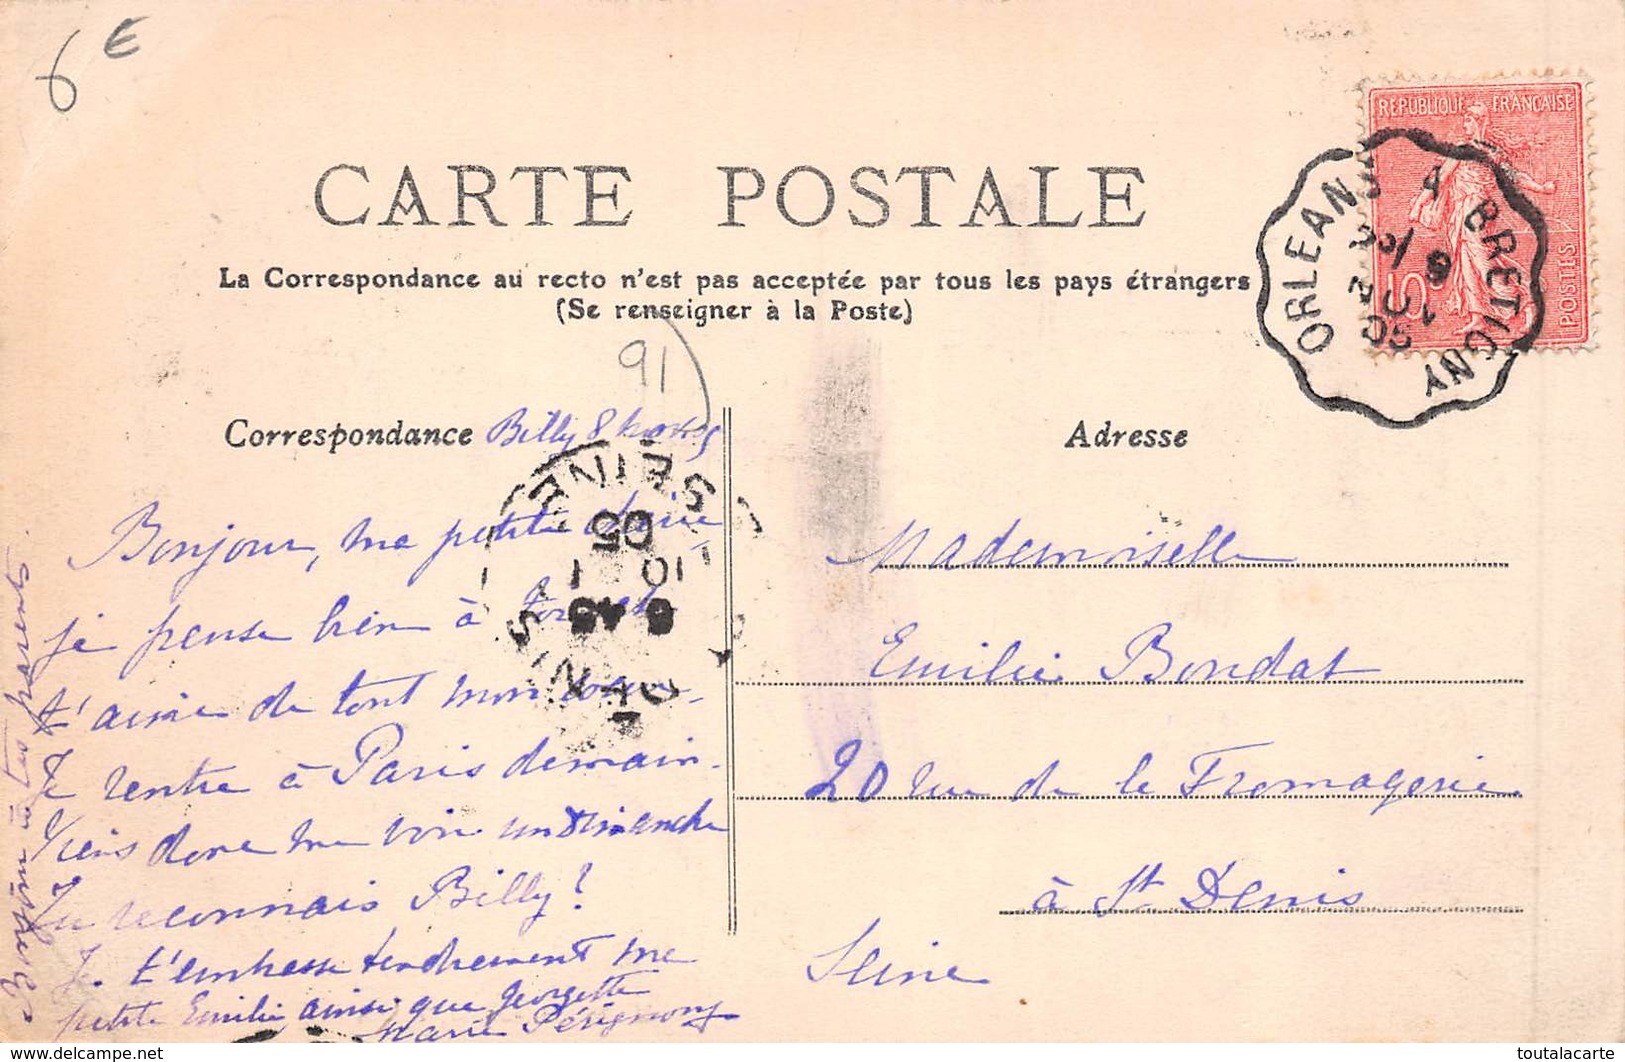 6 €
CARTE POSTALE
La Correspondance au recto n'est pas acceptée par tous les pays étrangers
(Se renseigner à la Poste)
91
REPUBLIQUE FRANÇAISE
POSTES
10
ORLEANS A BRETIGNY
Correspondance
Billy 8
Adresse
SEINE
ST DENIS
6 45
10 1
05
Bonjour, ma petite chérie
je pense bien à toi et
t'aime de tout mon coeur.
Je rentre à Paris demain.
Viens donc me voir un dimanche
Tu reconnais Billy?
Je t'embrasse tendrement ma
petite Emilie ainsi que Georgette
Marie Pérignon
Bonjour à tes parents.
Mademoiselle
Emilie Bondat
20 rue de la Fromagerie
à St Denis
Seine
www.delcampe.net
toutalacarte